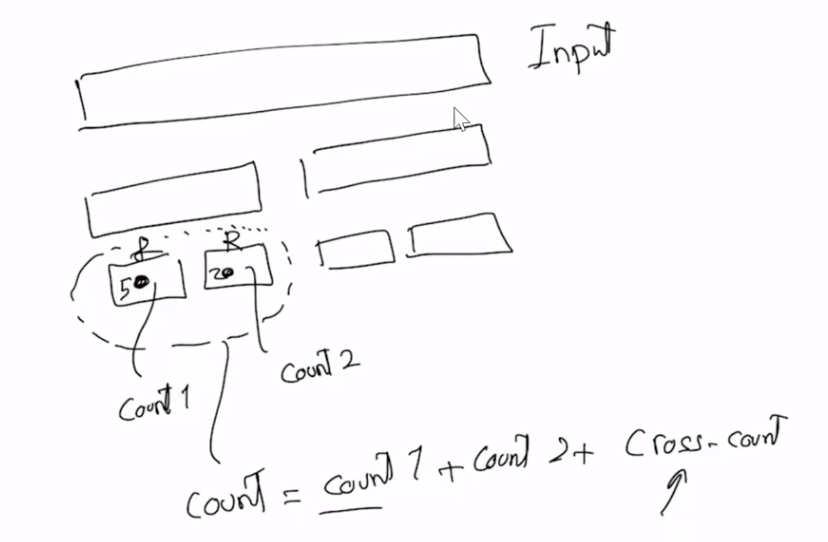 Input
L R
5 2
Count 1
Count 2
Count = Count 1 + Count 2 + Cross-count